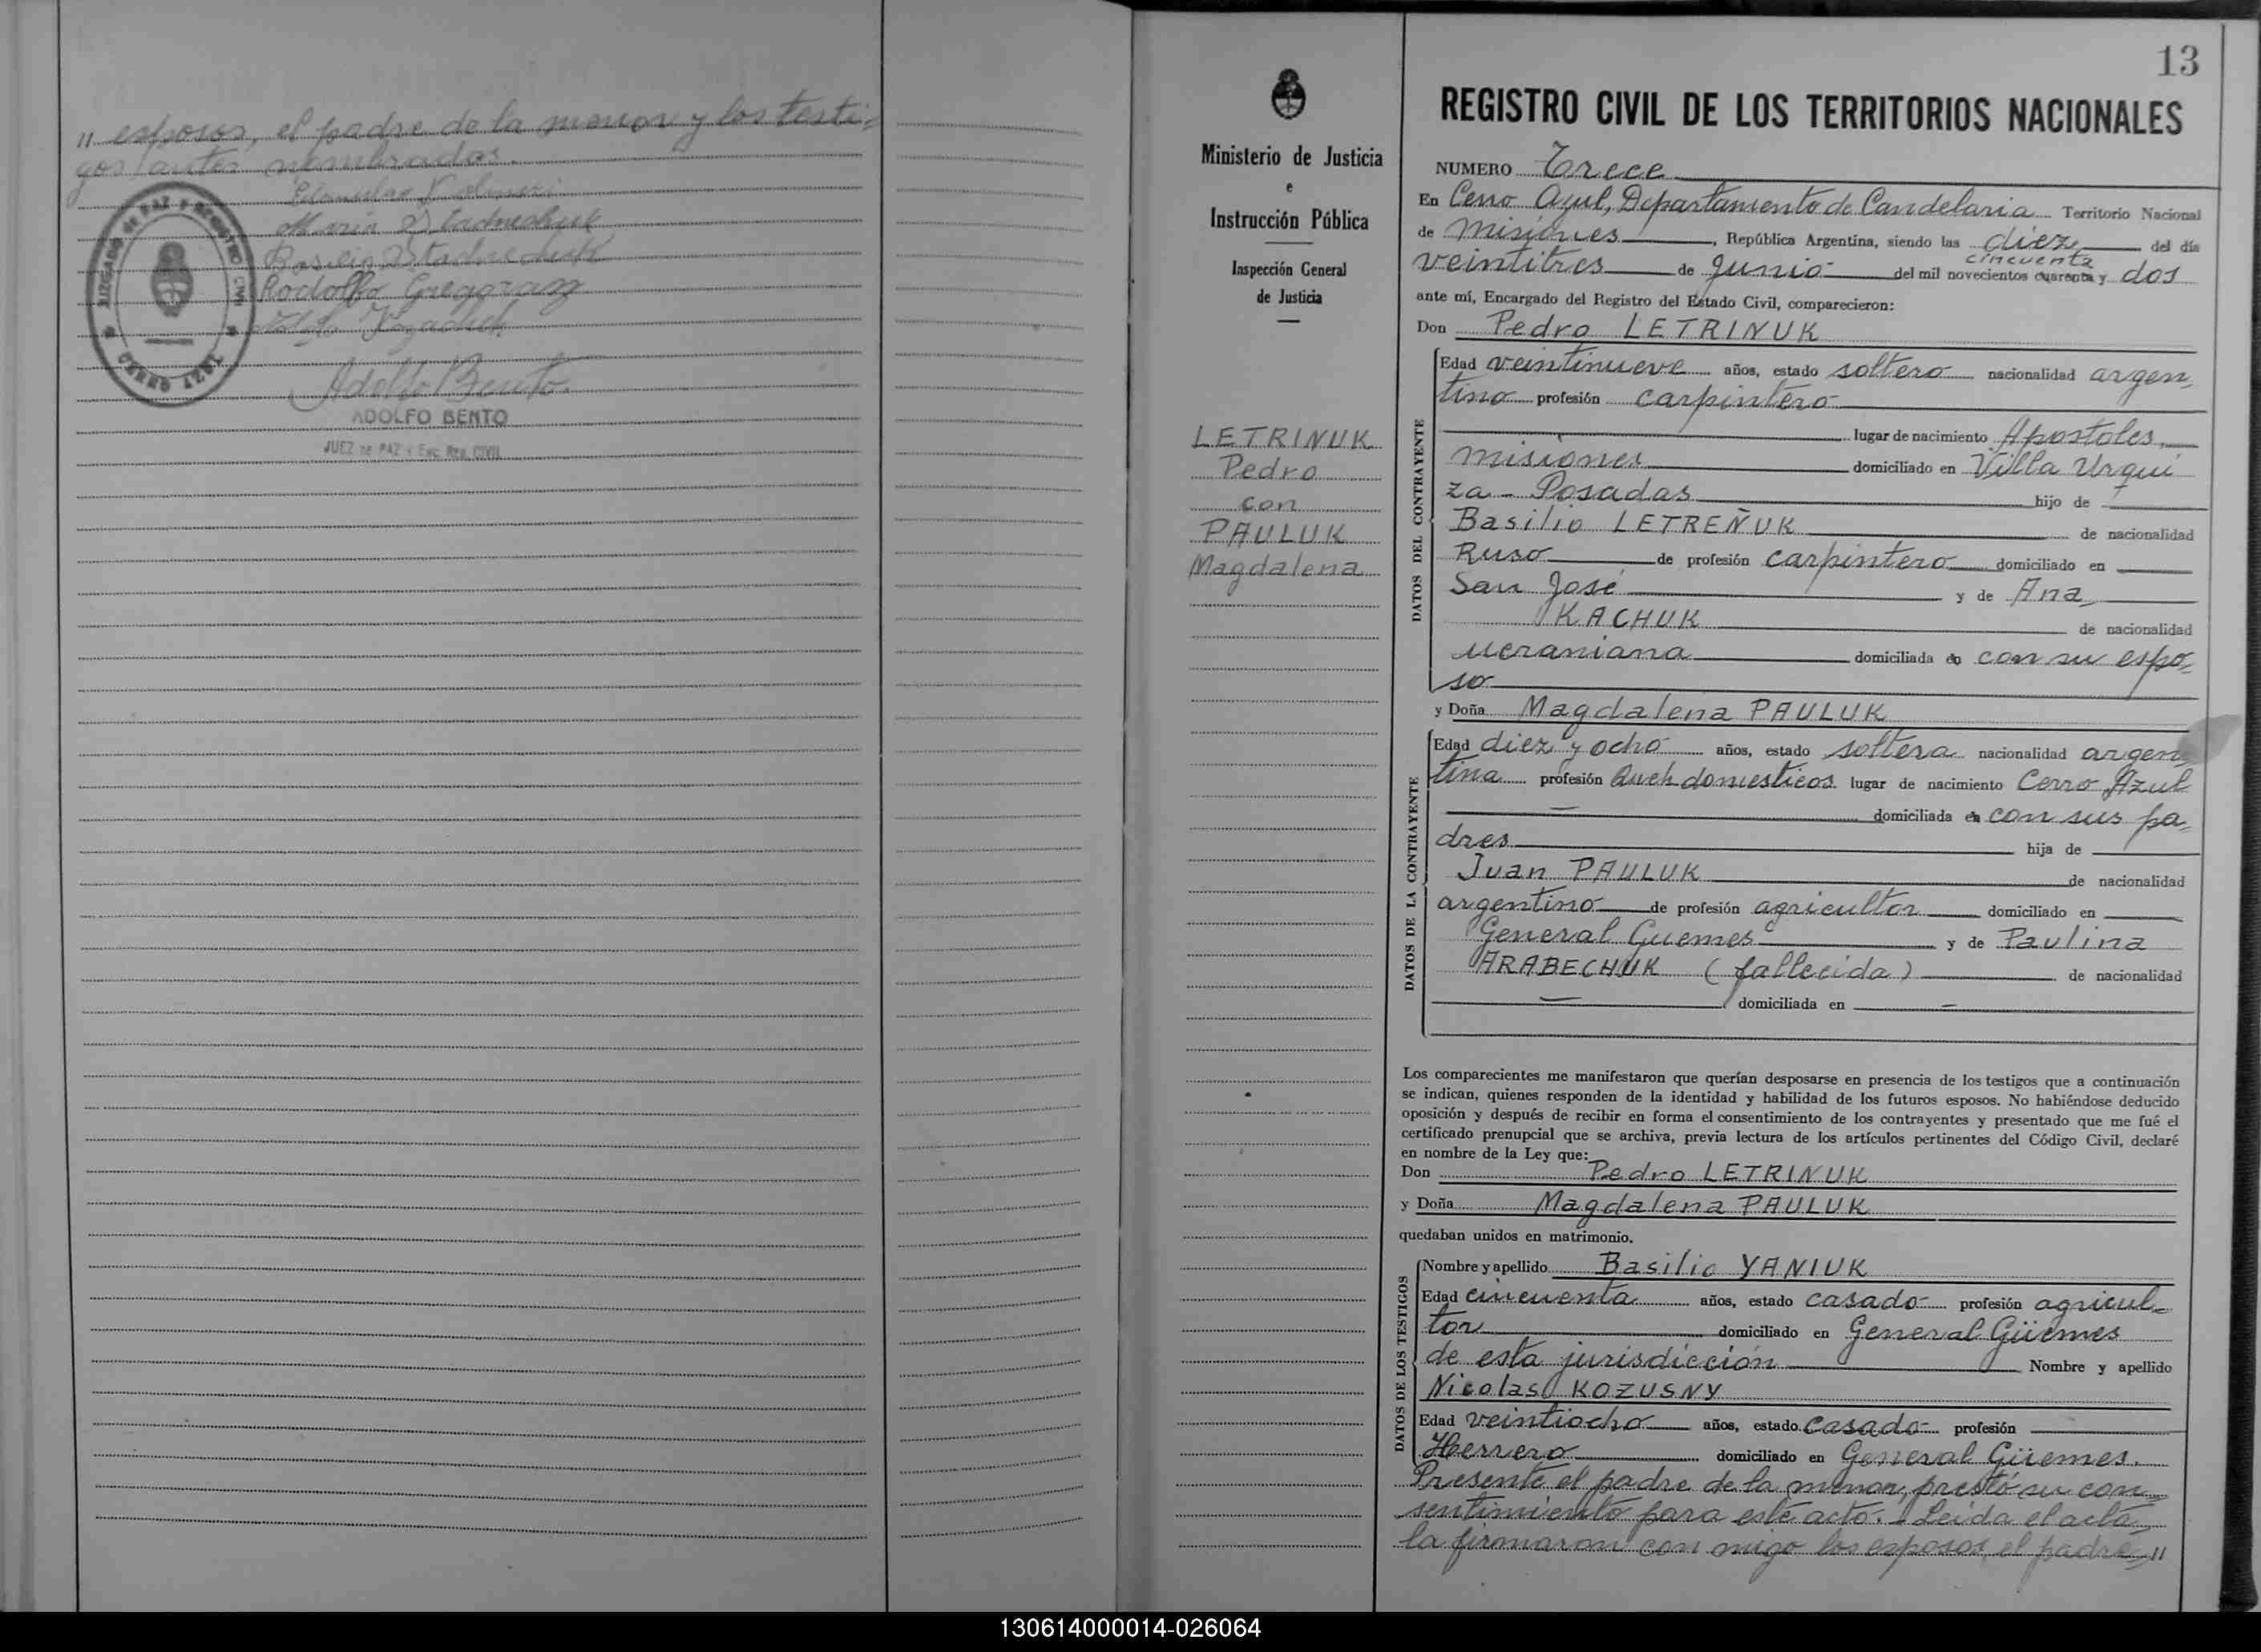 " esposos, el padre de la menor y los testi=
gos antes nombrados.
María
Basilio
Rodolfo
JUZGADO DE PAZ Y REGISTRO CIVIL
CERRO AZUL
Adolfo Bento
ADOLFO BENTO
JUEZ DE PAZ Y ENC. REG. CIVIL
13
Ministerio de Justicia
e
Instrucción Pública
Inspección General
de Justicia
LETRINUK
Pedro
con
PAULUK
Magdalena
REGISTRO CIVIL DE LOS TERRITORIOS NACIONALES
NUMERO Trece
En Cerro Azul, Departamento de Candelaria Territorio Nacional
de Misiones, República Argentina, siendo las diez del día
cincuenta
veintitres de Junio del mil novecientos cuarenta y dos
ante mí, Encargado del Registro del Estado Civil, comparecieron:
Don Pedro LETRINUK
DATOS DEL CONTRAYENTE
Edad veintinueve años, estado soltero nacionalidad argen=
tino profesión carpintero
lugar de nacimiento Apostoles,
Misiones domiciliado en Villa Urqui
za - Posadas hijo de
Basilio LETREÑUK de nacionalidad
Ruso de profesión carpintero domiciliado en
San José y de Ana
KACHUK de nacionalidad
ucraniana domiciliada en con su espo=
so
y Doña Magdalena PAULUK
DATOS DE LA CONTRAYENTE
Edad diez y ocho años, estado soltera nacionalidad argen=
tina profesión Queh domesticos lugar de nacimiento Cerro Azul
domiciliada en con sus pa=
dres hija de
Juan PAULUK de nacionalidad
argentino de profesión agricultor domiciliado en
General Guemes y de Paulina
ARABECHUK (fallecida) de nacionalidad
— domiciliada en —
Los comparecientes me manifestaron que querían desposarse en presencia de los testigos que a continuación
se indican, quienes responden de la identidad y habilidad de los futuros esposos. No habiéndose deducido
oposición y después de recibir en forma el consentimiento de los contrayentes y presentado que me fué el
certificado prenupcial que se archiva, previa lectura de los artículos pertinentes del Código Civil, declaré
en nombre de la Ley que:
Don Pedro LETRINUK
y Doña Magdalena PAULUK
quedaban unidos en matrimonio.
DATOS DE LOS TESTIGOS
Nombre y apellido Basilio YANIUK
Edad cincuenta años, estado casado profesión agricul=
tor domiciliado en General Güemes
de esta jurisdicción Nombre y apellido
Nicolas KOZUSNY
Edad veintiocho años, estado casado profesión
Herrero domiciliado en General Güemes.
Presente el padre de la menor, prestó su con=
sentimiento para este acto. Leída el acta
la firmaron con migo los esposos, el padre="
130614000014-026064